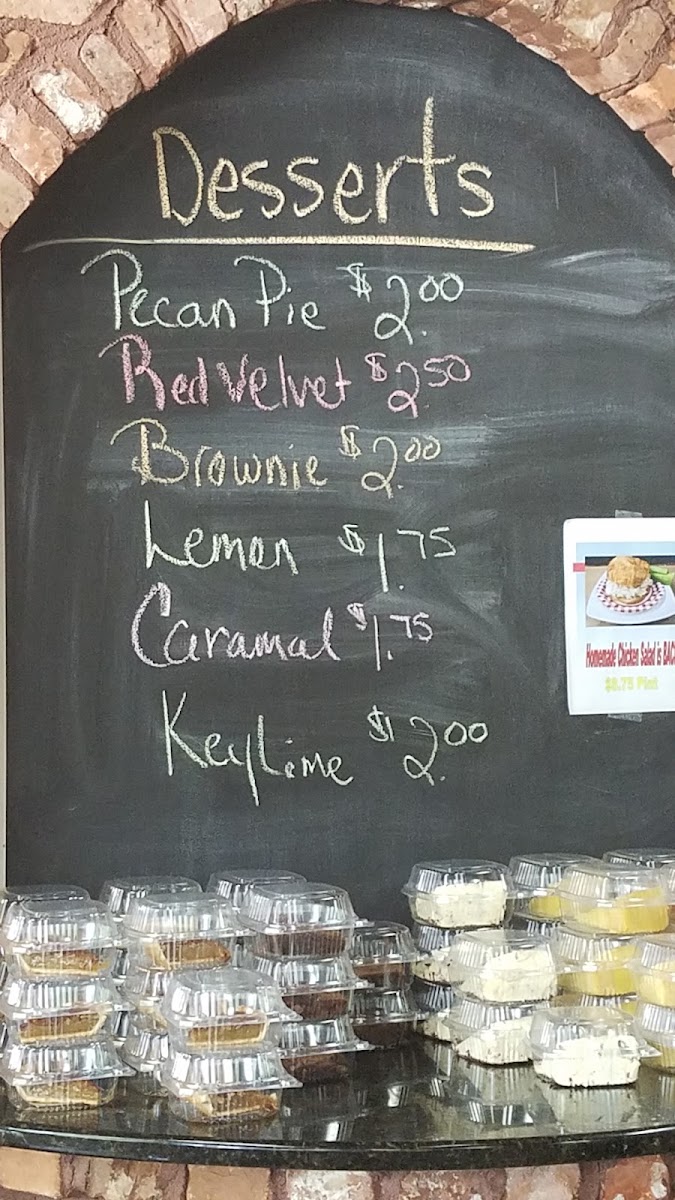 Desserts
Pecan Pie $2.00
Red Velvet $2.50
Brownie $2.00
Lemon $1.75
Caramal $1.75
Key Lime $2.00
Homemade Chicken Salad is BACK
$8.75 Pint